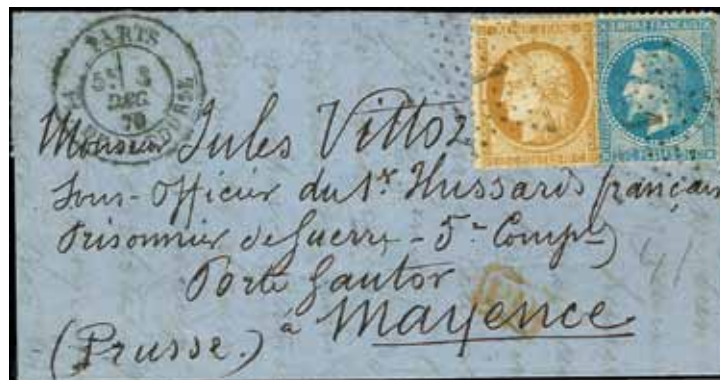 PARIS
5
DEC.
70
EMPIRE FRANÇAIS
Monsieur Jules Vittoz
Sous-Officier du 1r Hussards français
Prisonnier de Guerre - 5e Compe
Porte Gautor
à Mayence
(Prusse.)
41